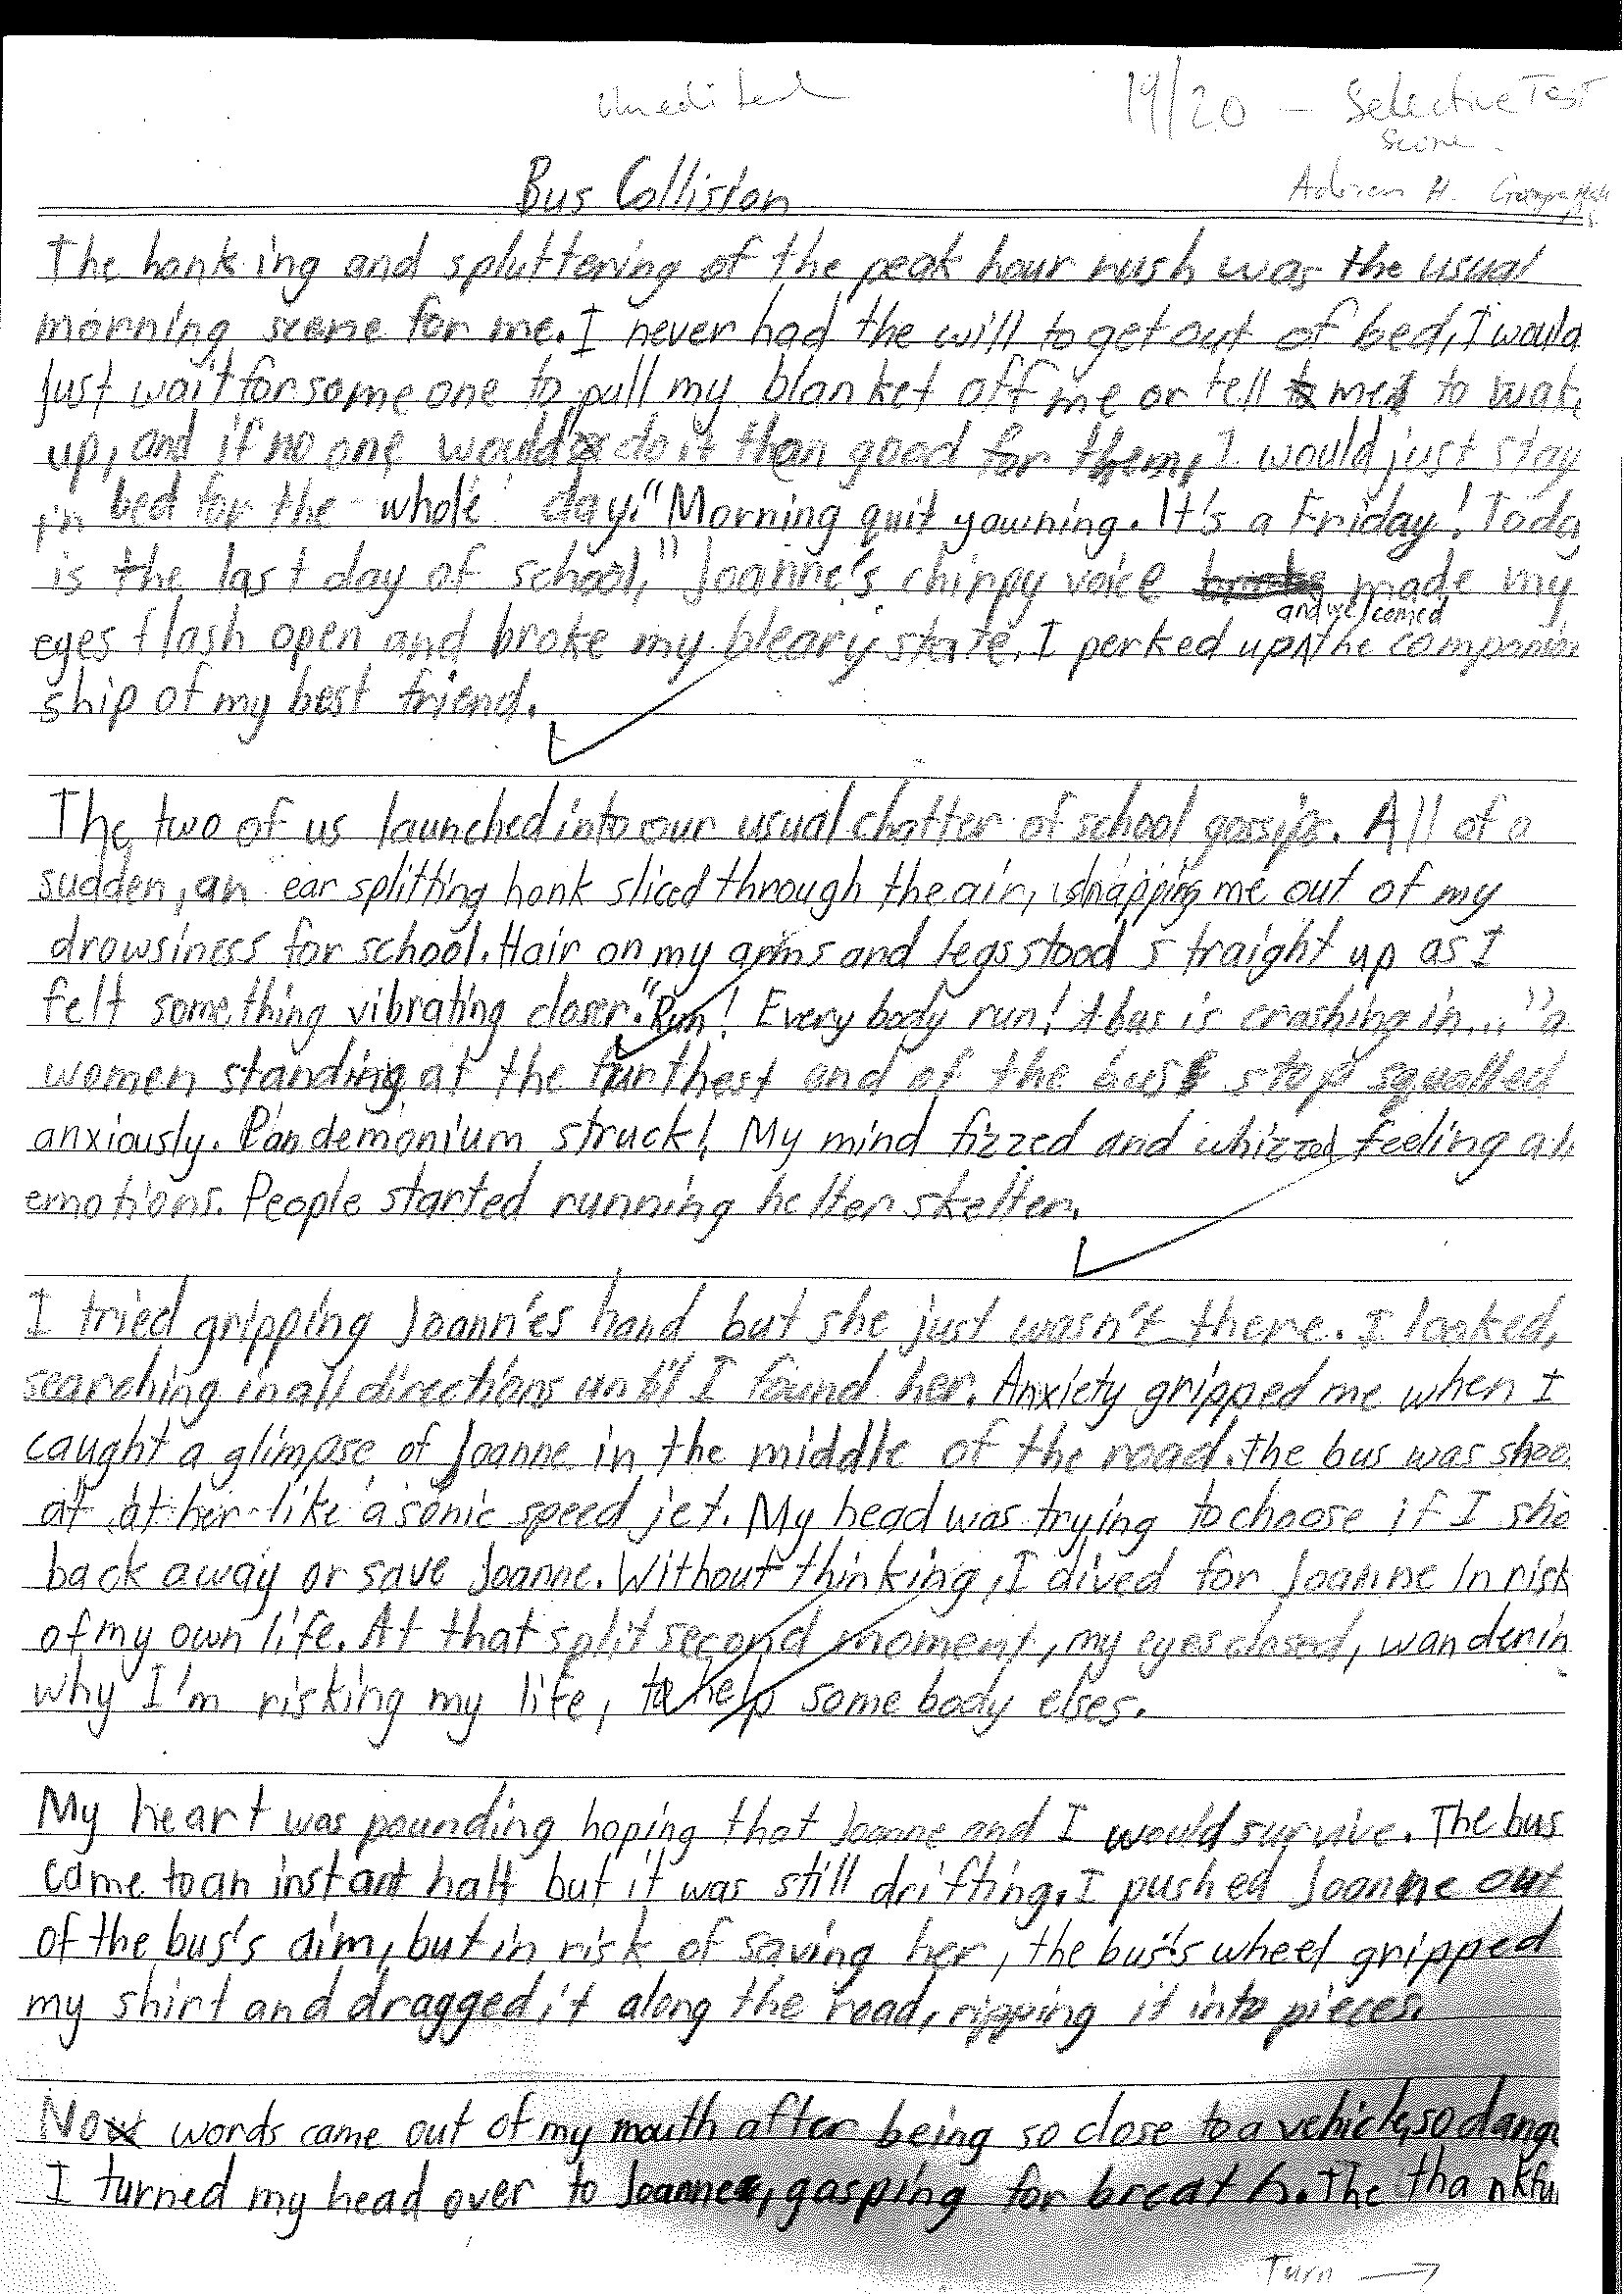 Unedited
19/20 - Selective Test
Score.
Adrian H.
Bus Collision
The honking and spluttering of the peak hour rush was the usual
morning scene for me. I never had the will to get out of bed, I would
just wait for someone to pull my blanket off me or tell me to wak
up, and if no one would do it then good for them, I would just stay
in bed for the whole day. "Morning quit yawning. It's a Friday! Toda
is the last day of school," Joanne's chirpy voice made my
eyes flash open and broke my bleary state. I perked up and welcomed the companion
ship of my best friend.
The two of us launched into our usual chatter of school gossips. All of a
sudden, an ear splitting honk sliced through the air, snapping me out of my
drowsiness for school. Hair on my arms and legs stood straight up as I
felt something vibrating closer. "Run! Every body run! A bus is crashing in..." a
women standing at the furthest end of the bus stop squalled
anxiously. Pandemonium struck! My mind fizzed and whizzed feeling all
emotions. People started running helter skelter.
I tried gripping Joann'es hand but she just wasn't there. I looked,
searching in all directions until I found her. Anxiety gripped me when I
caught a glimpse of Joanne in the middle of the road. The bus was shoo
at at her like a sonic speed jet. My head was trying to choose if I sho
back away or save Joanne. Without thinking, I dived for Joanne in risk
of my own life. At that split second moment, my eyes closed, wanderin
why I'm risking my life, to help some body elses.
My heart was pounding hoping that Joanne and I would survive. The bus
came to an instant halt but it was still drifting. I pushed Joanne out
of the bus's aim, but in risk of saving her, the bus's wheel gripped
my shirt and dragged it along the road, ripping it into pieces.
No words came out of my mouth after being so close to a vehicle, so dange
I turned my head over to Joanne, gasping for breath. The thankfu
Turn →